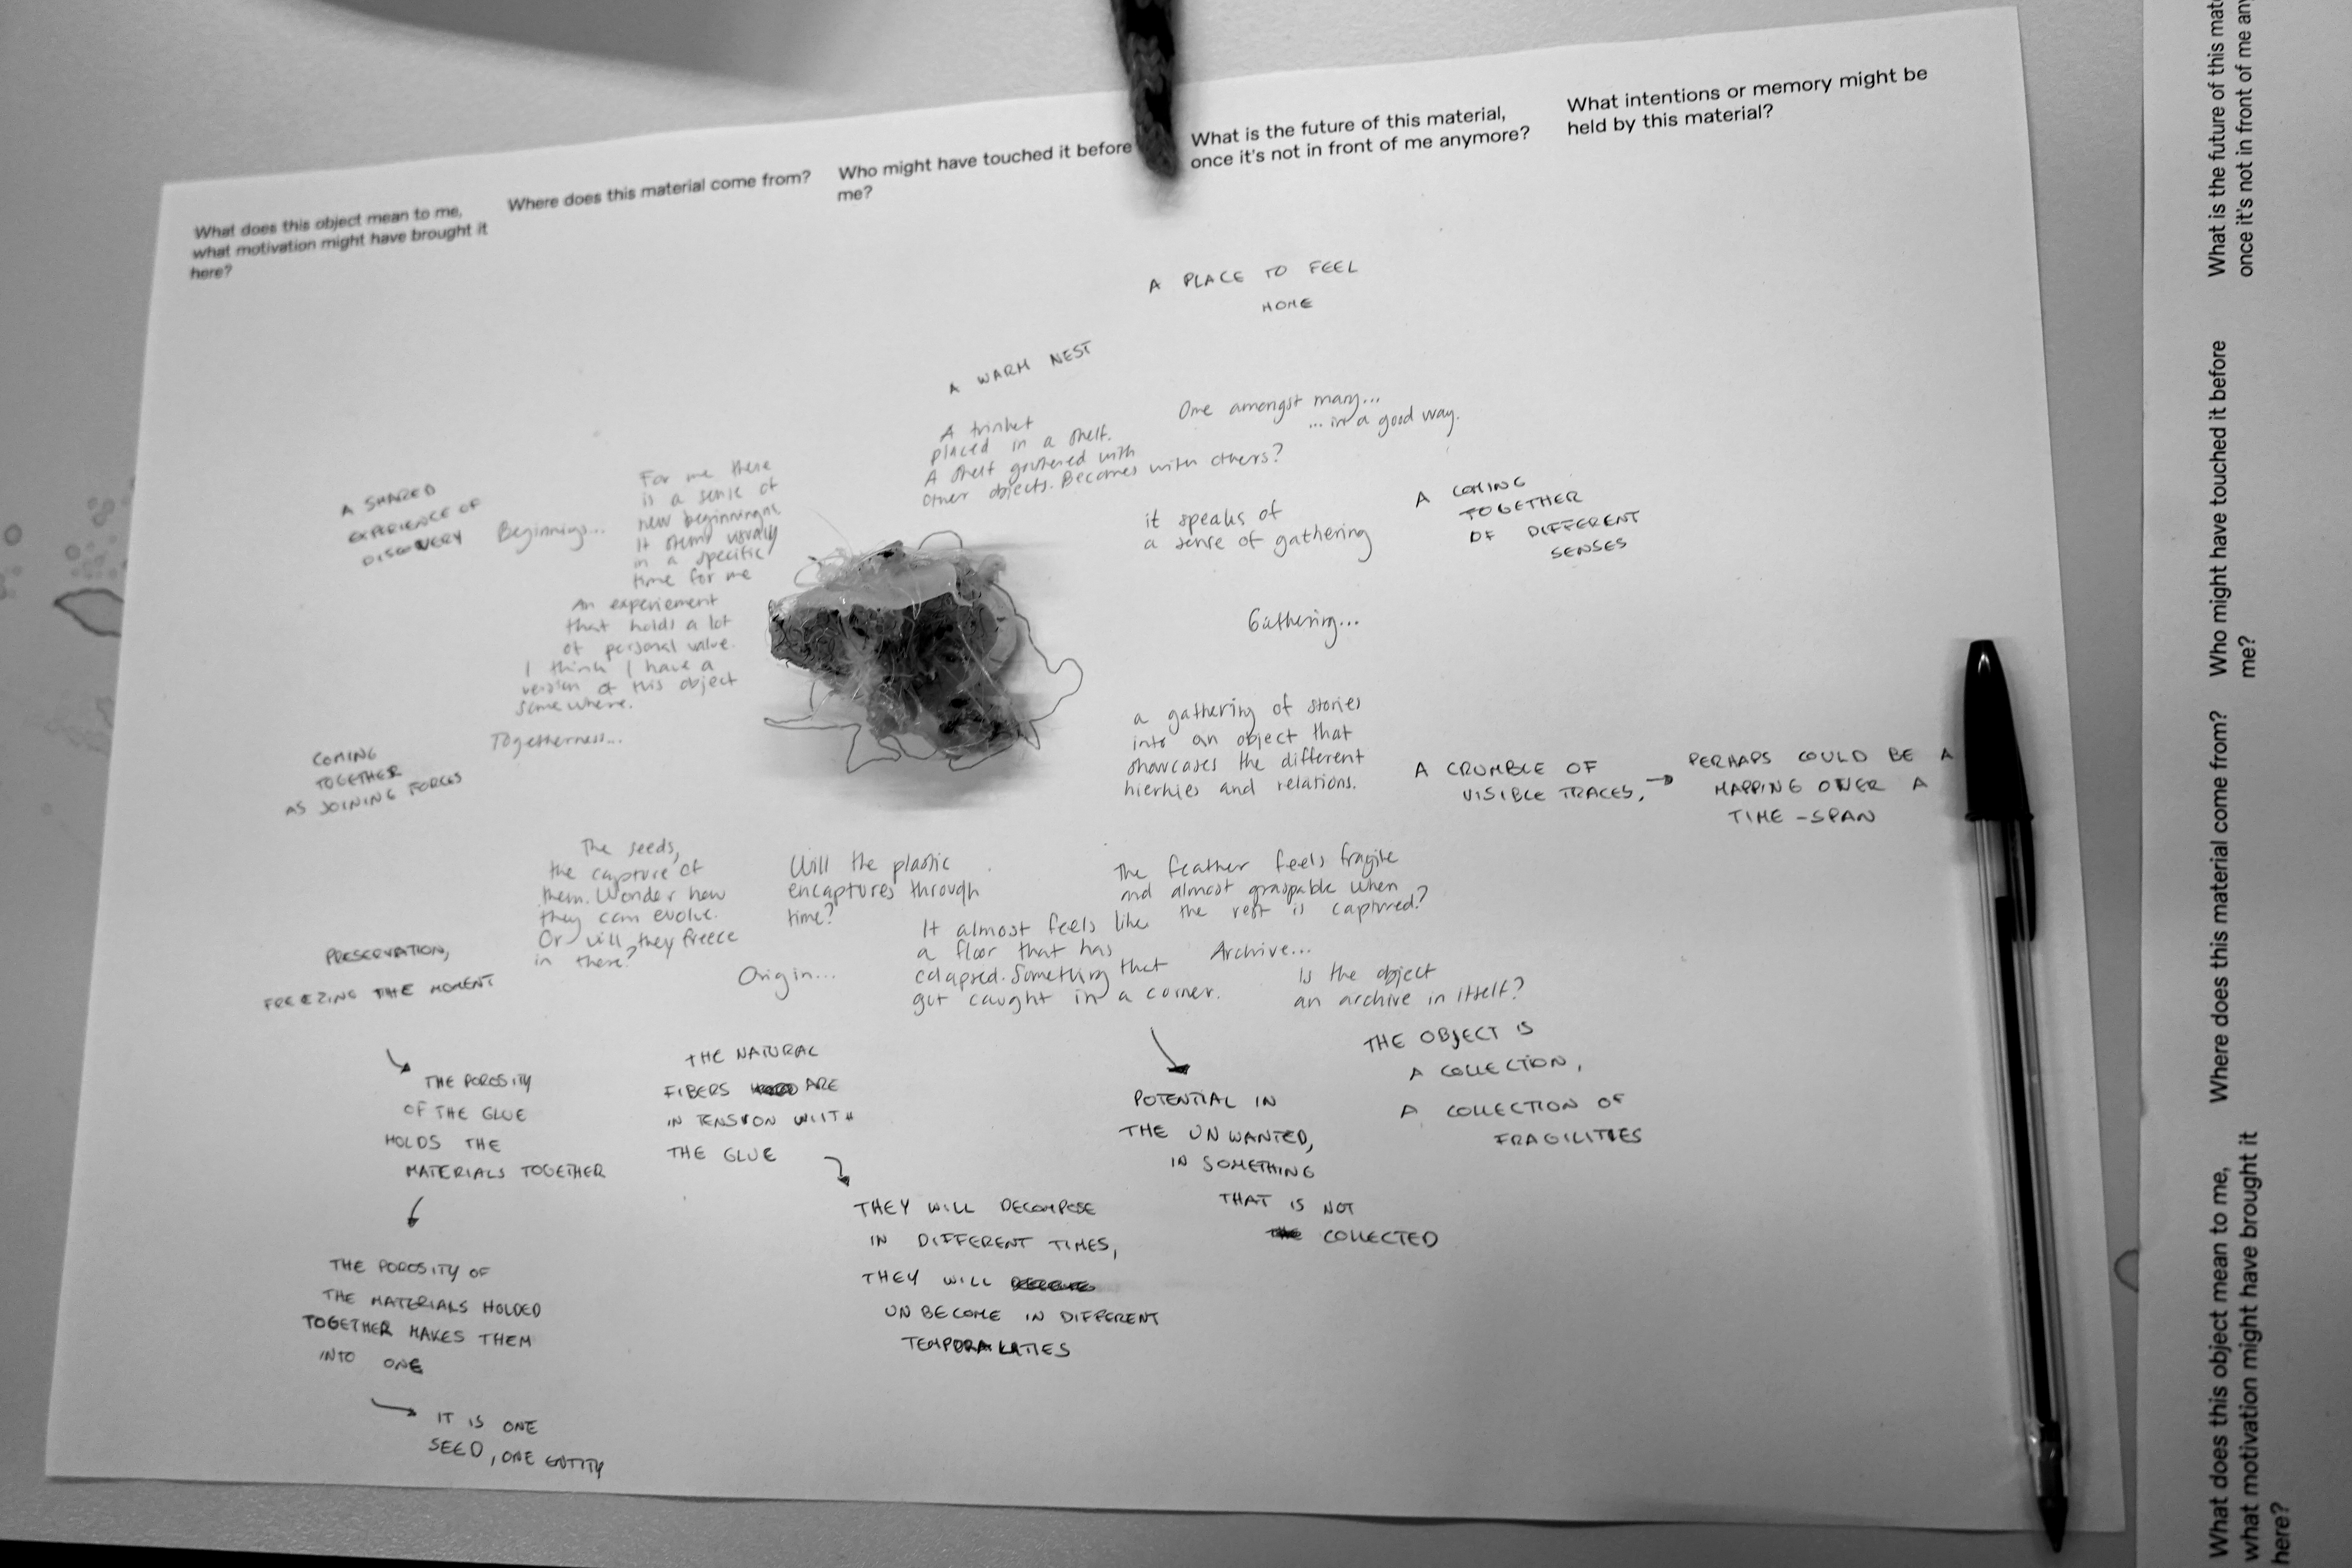 What does this object mean to me,
what motivation might have brought it
here?
Where does this material come from?
Who might have touched it before
me?
What is the future of this material,
once it's not in front of me anymore?
What intentions or memory might be
held by this material?
A PLACE TO FEEL
HOME
A WARM NEST
A trinket
placed in a shelf.
A shelf gathered with
other objects. Becomes with others?
One amongst many...
... in a good way.
A SHARED
EXPERIENCE OF
DISCOVERY
Beginnings...
For me there
is a sense of
new beginnings
It stems visually
in a specific
time for me
An experiement
that holds a lot
of personal value.
I think I have a
version of this object
somewhere.
it speaks of
a sense of gathering
A COMING
TOGETHER
OF DIFFERENT
SENSES
Gathering...
Togetherness...
COMING
TOGETHER
AS JOINING FORCES
a gathering of stories
into an object that
showcases the different
hierhies and relations.
A CRUMBLE OF
VISIBLE TRACES,
PERHAPS COULD BE A
MAPPING OVER A
TIME-SPAN
The seeds,
the capture of
them. Wonder how
they can evolve.
Or will they freece
in there?
Will the plastic
encaptures through
time?
The feather feels fragile
and almost graspable when
the rest is captured?
It almost feels like
a floor that has
colapsed. Something that
got caught in a corner.
Origin...
Archive...
Is the object
an archive in itself?
PRESERVATION,
FREEZING THE MOMENT
THE POROSITY
OF THE GLUE
HOLDS THE
MATERIALS TOGETHER
THE POROSITY OF
THE MATERIALS HOLDED
TOGETHER MAKES THEM
INTO ONE
IT IS ONE
SEED, ONE ENTITY
THE NATURAL
FIBERS ARE
IN TENSION WIITH
THE GLUE
THEY WILL DECOMPOSE
IN DIFFERENT TIMES,
THEY WILL
UNBECOME IN DIFFERENT
TEMPORALATIES
POTENTIAL IN
THE UNWANTED,
IN SOMETHING
THAT IS NOT
COLLECTED
THE OBJECT IS
A COLLECTION,
A COLLECTION OF
FRAGILITIES
What does this object mean to me,
what motivation might have brought it
here?
Where does this material come from?
Who might have touched it before
me?
What is the future of this
once it's not in front of me